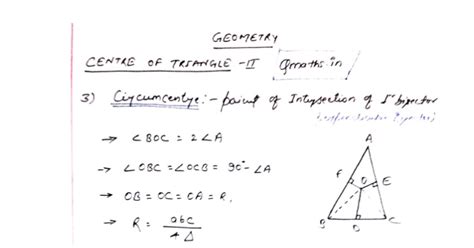 GEOMETRY
CENTRE OF TRIANGLE - II Qmaths in
3) Circumcentre :- point of Intersection of ⊥r bisector
→ ∠BOC = 2∠A
→ ∠OBC = ∠OCB = 90° - ∠A
→ OB = OC = OA = R.
→ R = abc / 4Δ
A
F
O
E
B
D
C